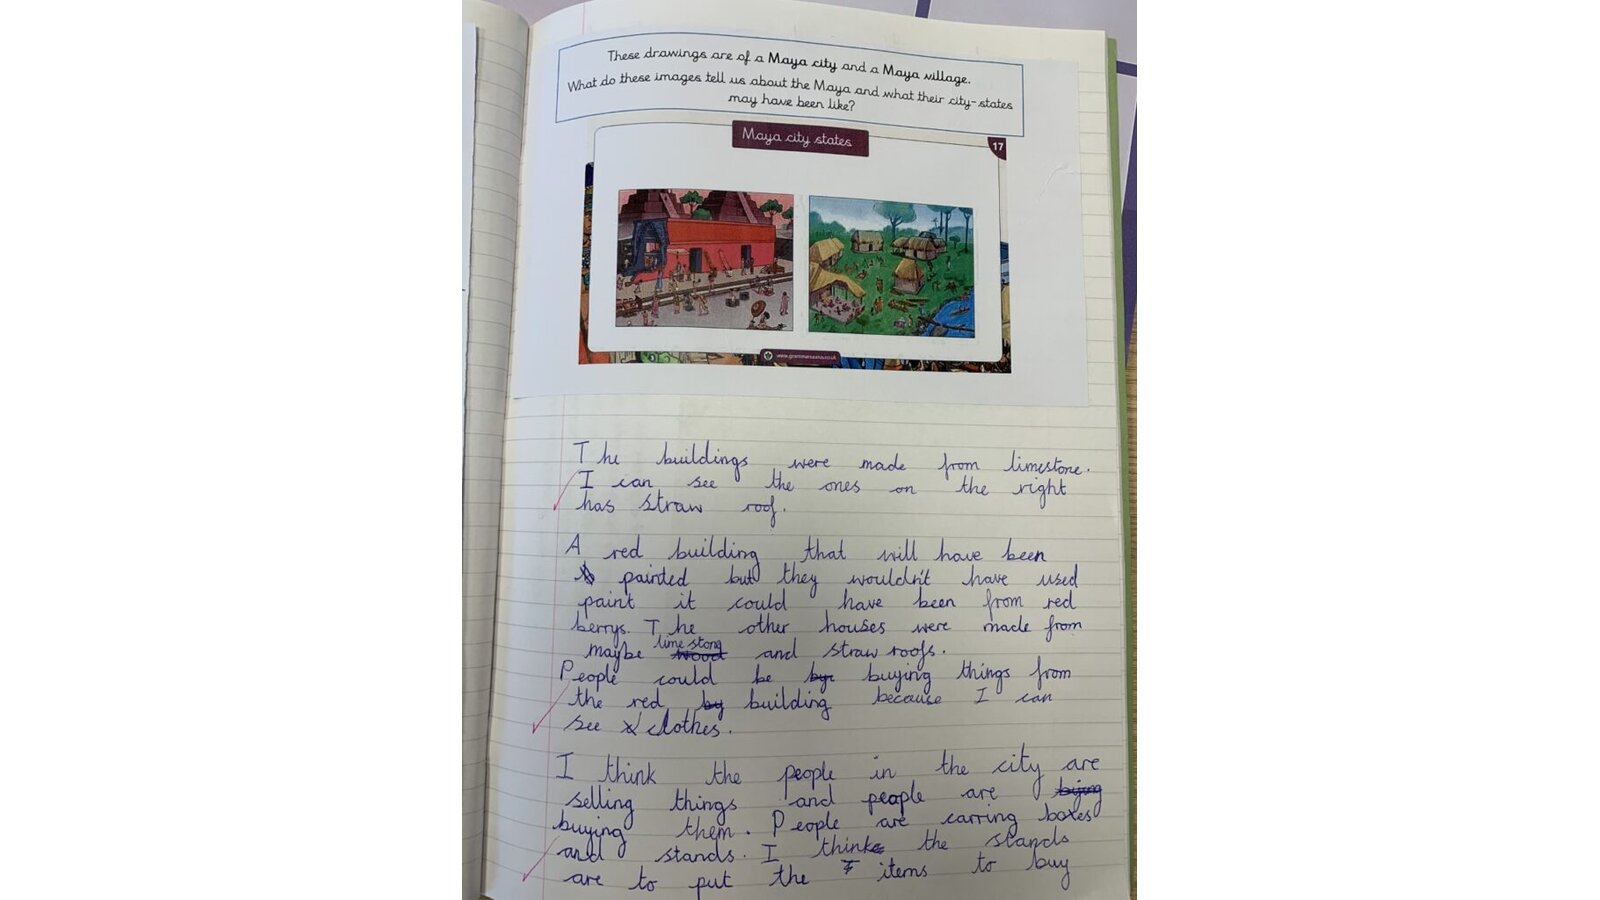 These drawings are of a Maya city and a Maya village.
What do these images tell us about the Maya and what their city-states
may have been like?
Maya city states
17
www.grammarsaurus.co.uk
The buildings were made from limestone.
I can see the ones on the right
has straw roof.
A red building that will have been
painted but they wouldn't have used
paint it could have been from red
berrys. The other houses were made from
lime stone
maybe wood and straw roofs.
People could be bye buying things from
the red by building because I can
see clothes.
I think the people in the city are
selling things and people are bying
buying them. People are carring boxes
and stands. I think the stands
are to put the items to buy